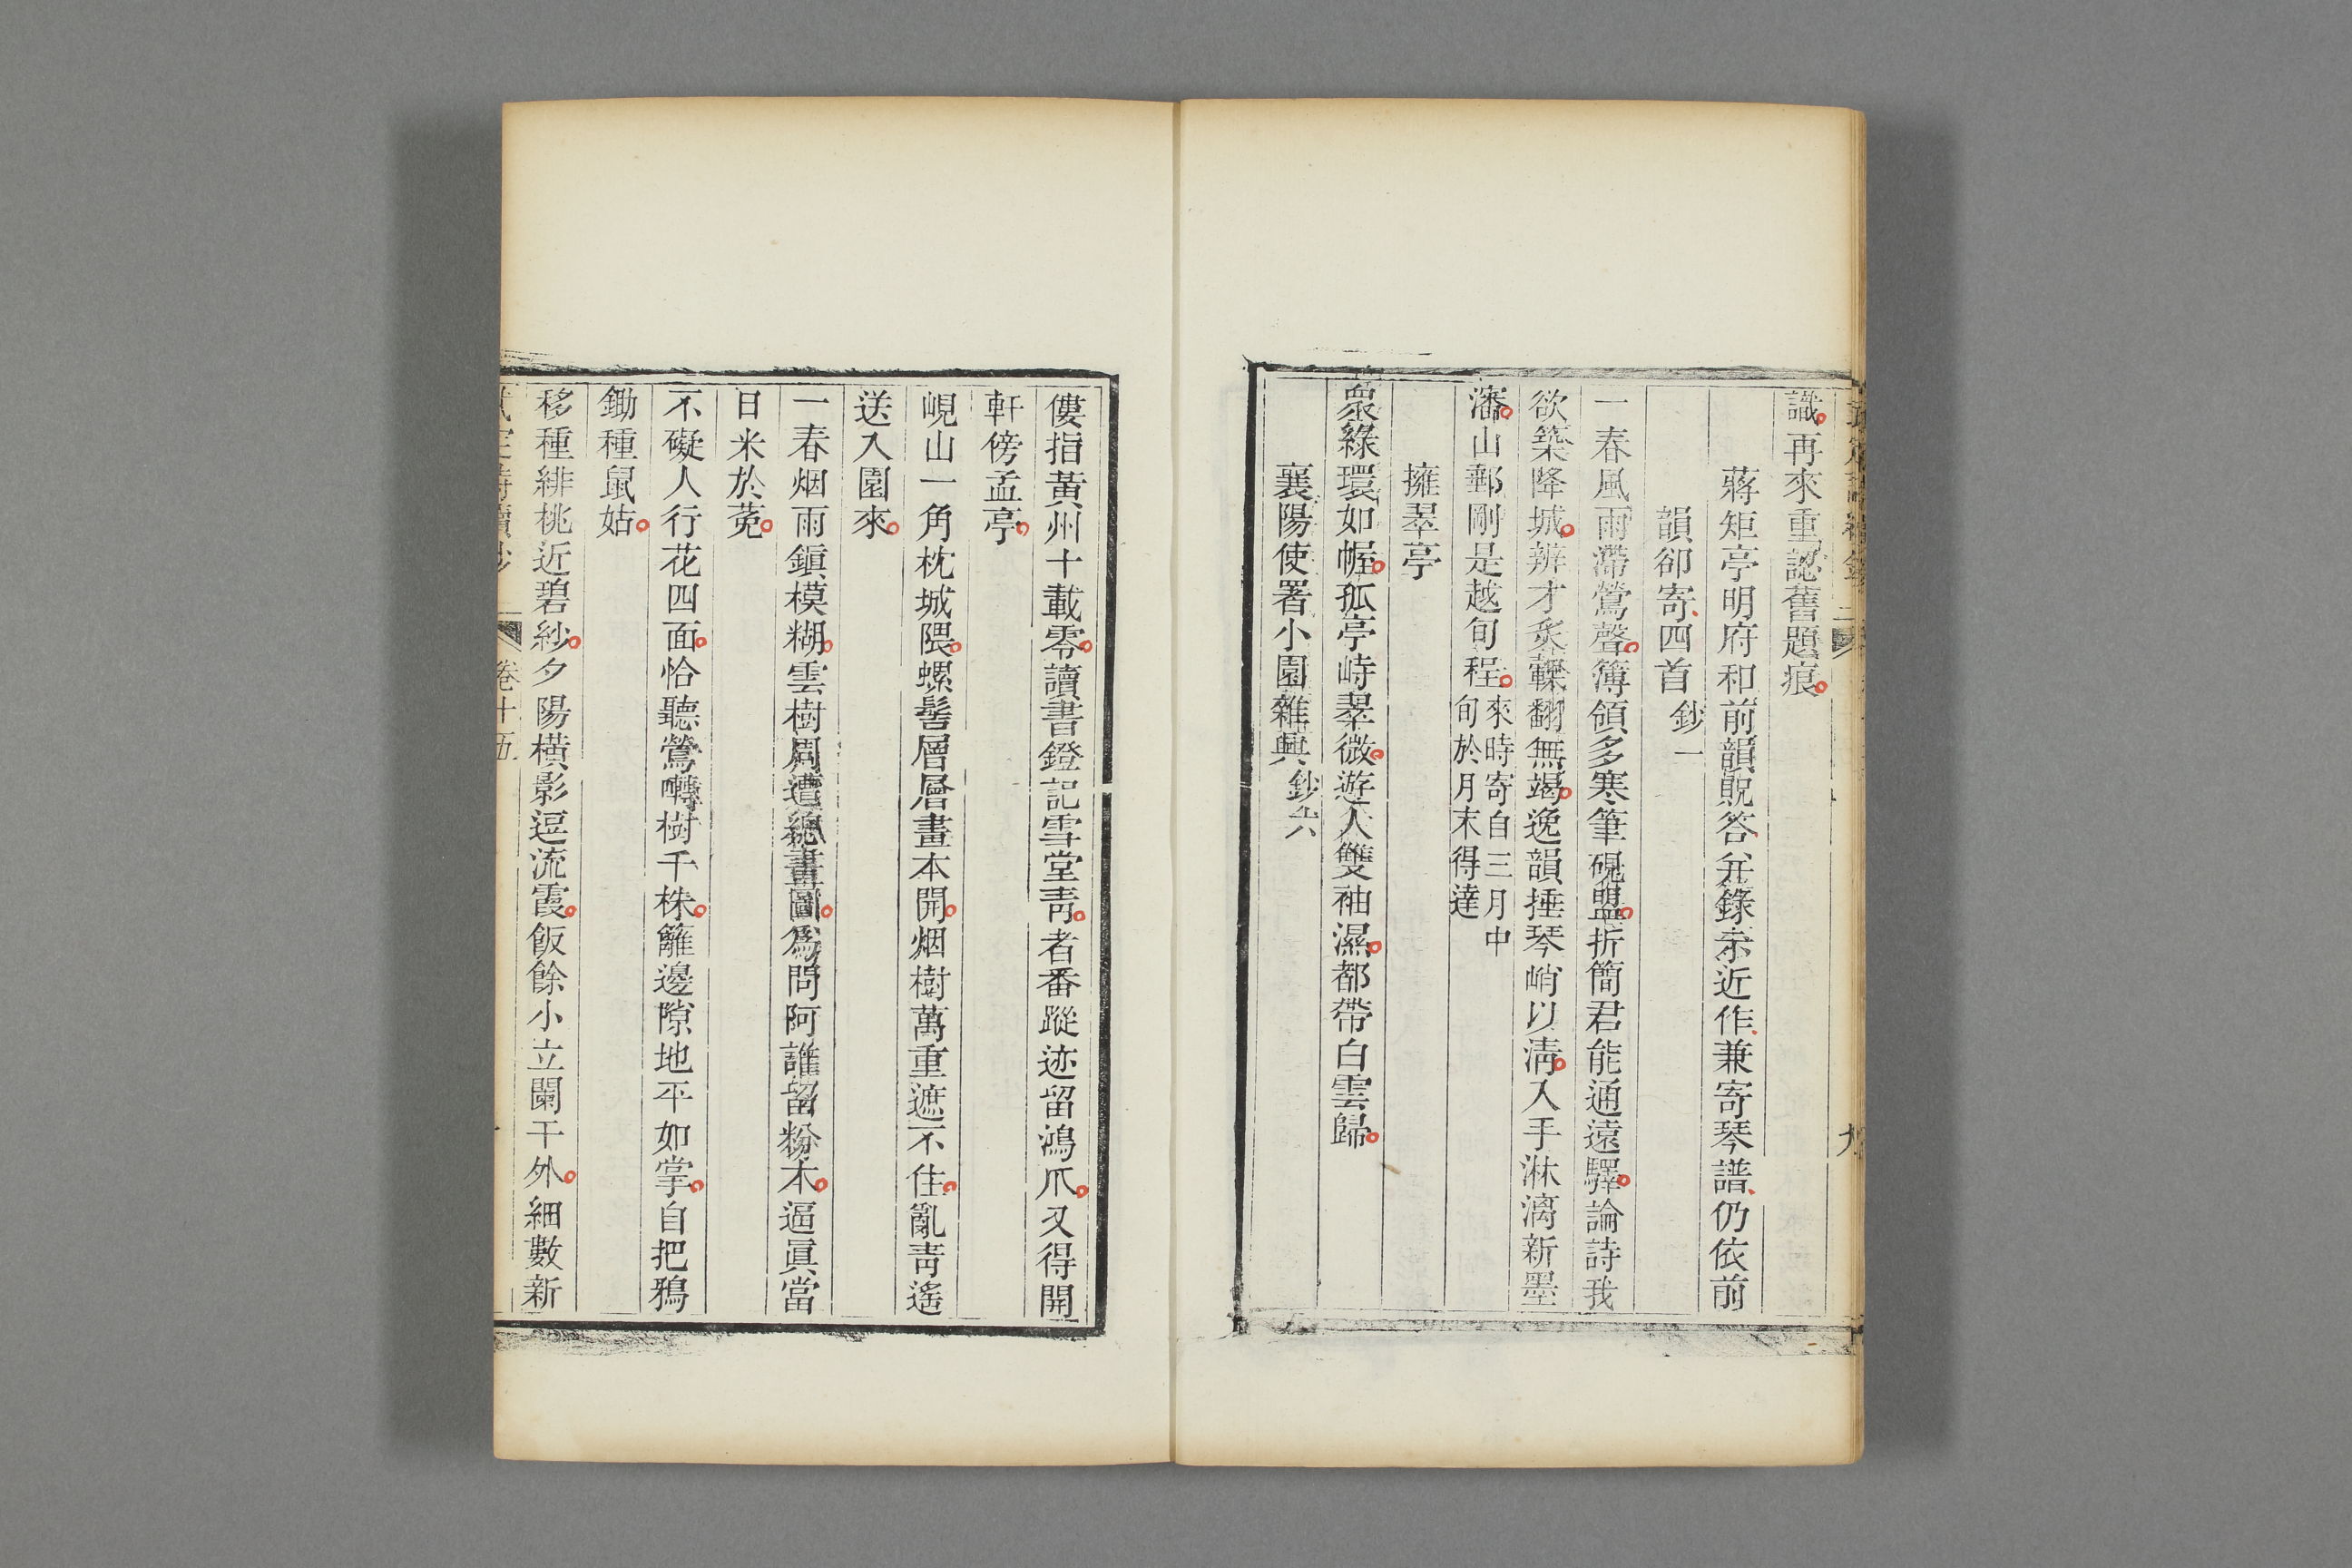 識再來重認舊題痕
蔣矩亭明府和前韻貺答幷錄示近作兼寄琴譜仍依前
韻卻寄四首鈔一
一春風雨滯鶯聲簿領多寒筆硯盟折簡君能通遠驛論詩我
欲築降城辨才炙輠翻無竭逸韻捶琴峭以淸入手淋漓新墨
瀋山郵剛是越旬程來時寄自三月中
旬於月末得達
擁翠亭
衆綠環如幄孤亭峙翠微遊人雙袖濕都帶白雲歸
襄陽使署小園雜興鈔六
九
僂指黃州十載零讀書鐙記雪堂靑者番蹤迹留鴻爪又得開
軒傍孟亭
峴山一角枕城隈螺髻層層畫本開烟樹萬重遮不住亂靑遙
送入園來
一春烟雨鎭模糊雲樹周遭總畫圖爲問阿誰留粉本逼眞當
日米於菟
不礙人行花四面恰聽鶯囀樹千株籬邊隙地平如掌自把鴉
鋤種鼠姑
移種緋桃近碧紗夕陽橫影逗流霞飯餘小立闌干外細數新
卷十五